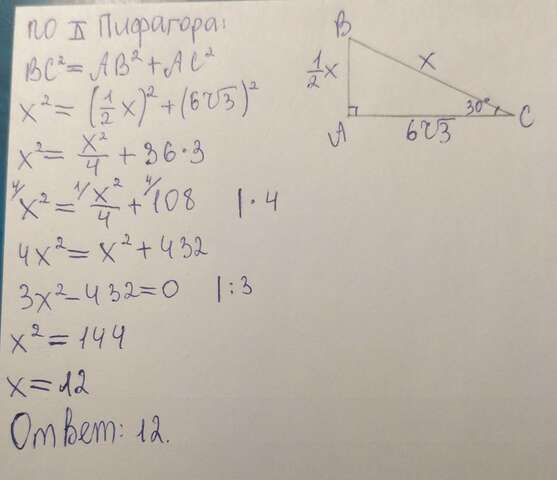 ПО П Пифагора:
BC² = AB² + AC²
x² = (1/2 x)² + (6√3)²
x² = x²/4 + 36·3
4/ x² = 1/ x²/4 + 4/ 108 |·4
4x² = x² + 432
3x² - 432 = 0 |:3
x² = 144
x = 12
Ответ: 12.
B
1/2 x
x
30°
A
6√3
C